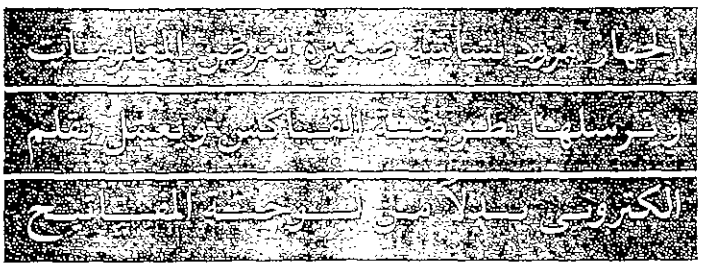 الجهاز مزود بشاشة صغيرة لعرض المعلومات
وترسلها بطريقة الفاكس ويعمل بقلم
الكترونى بدلاً من لوحة المفاتيح